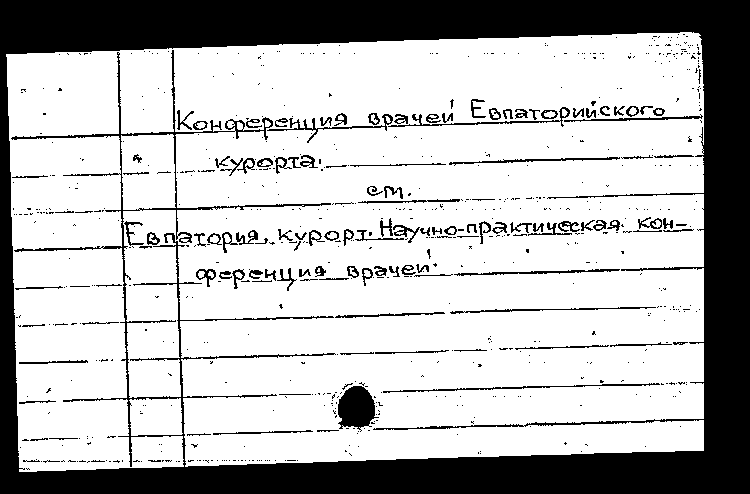 Конференция врачей Евпаторийского
курорта.
см.
Евпатория, курорт. Научно-практическая кон-
ференция врачей.